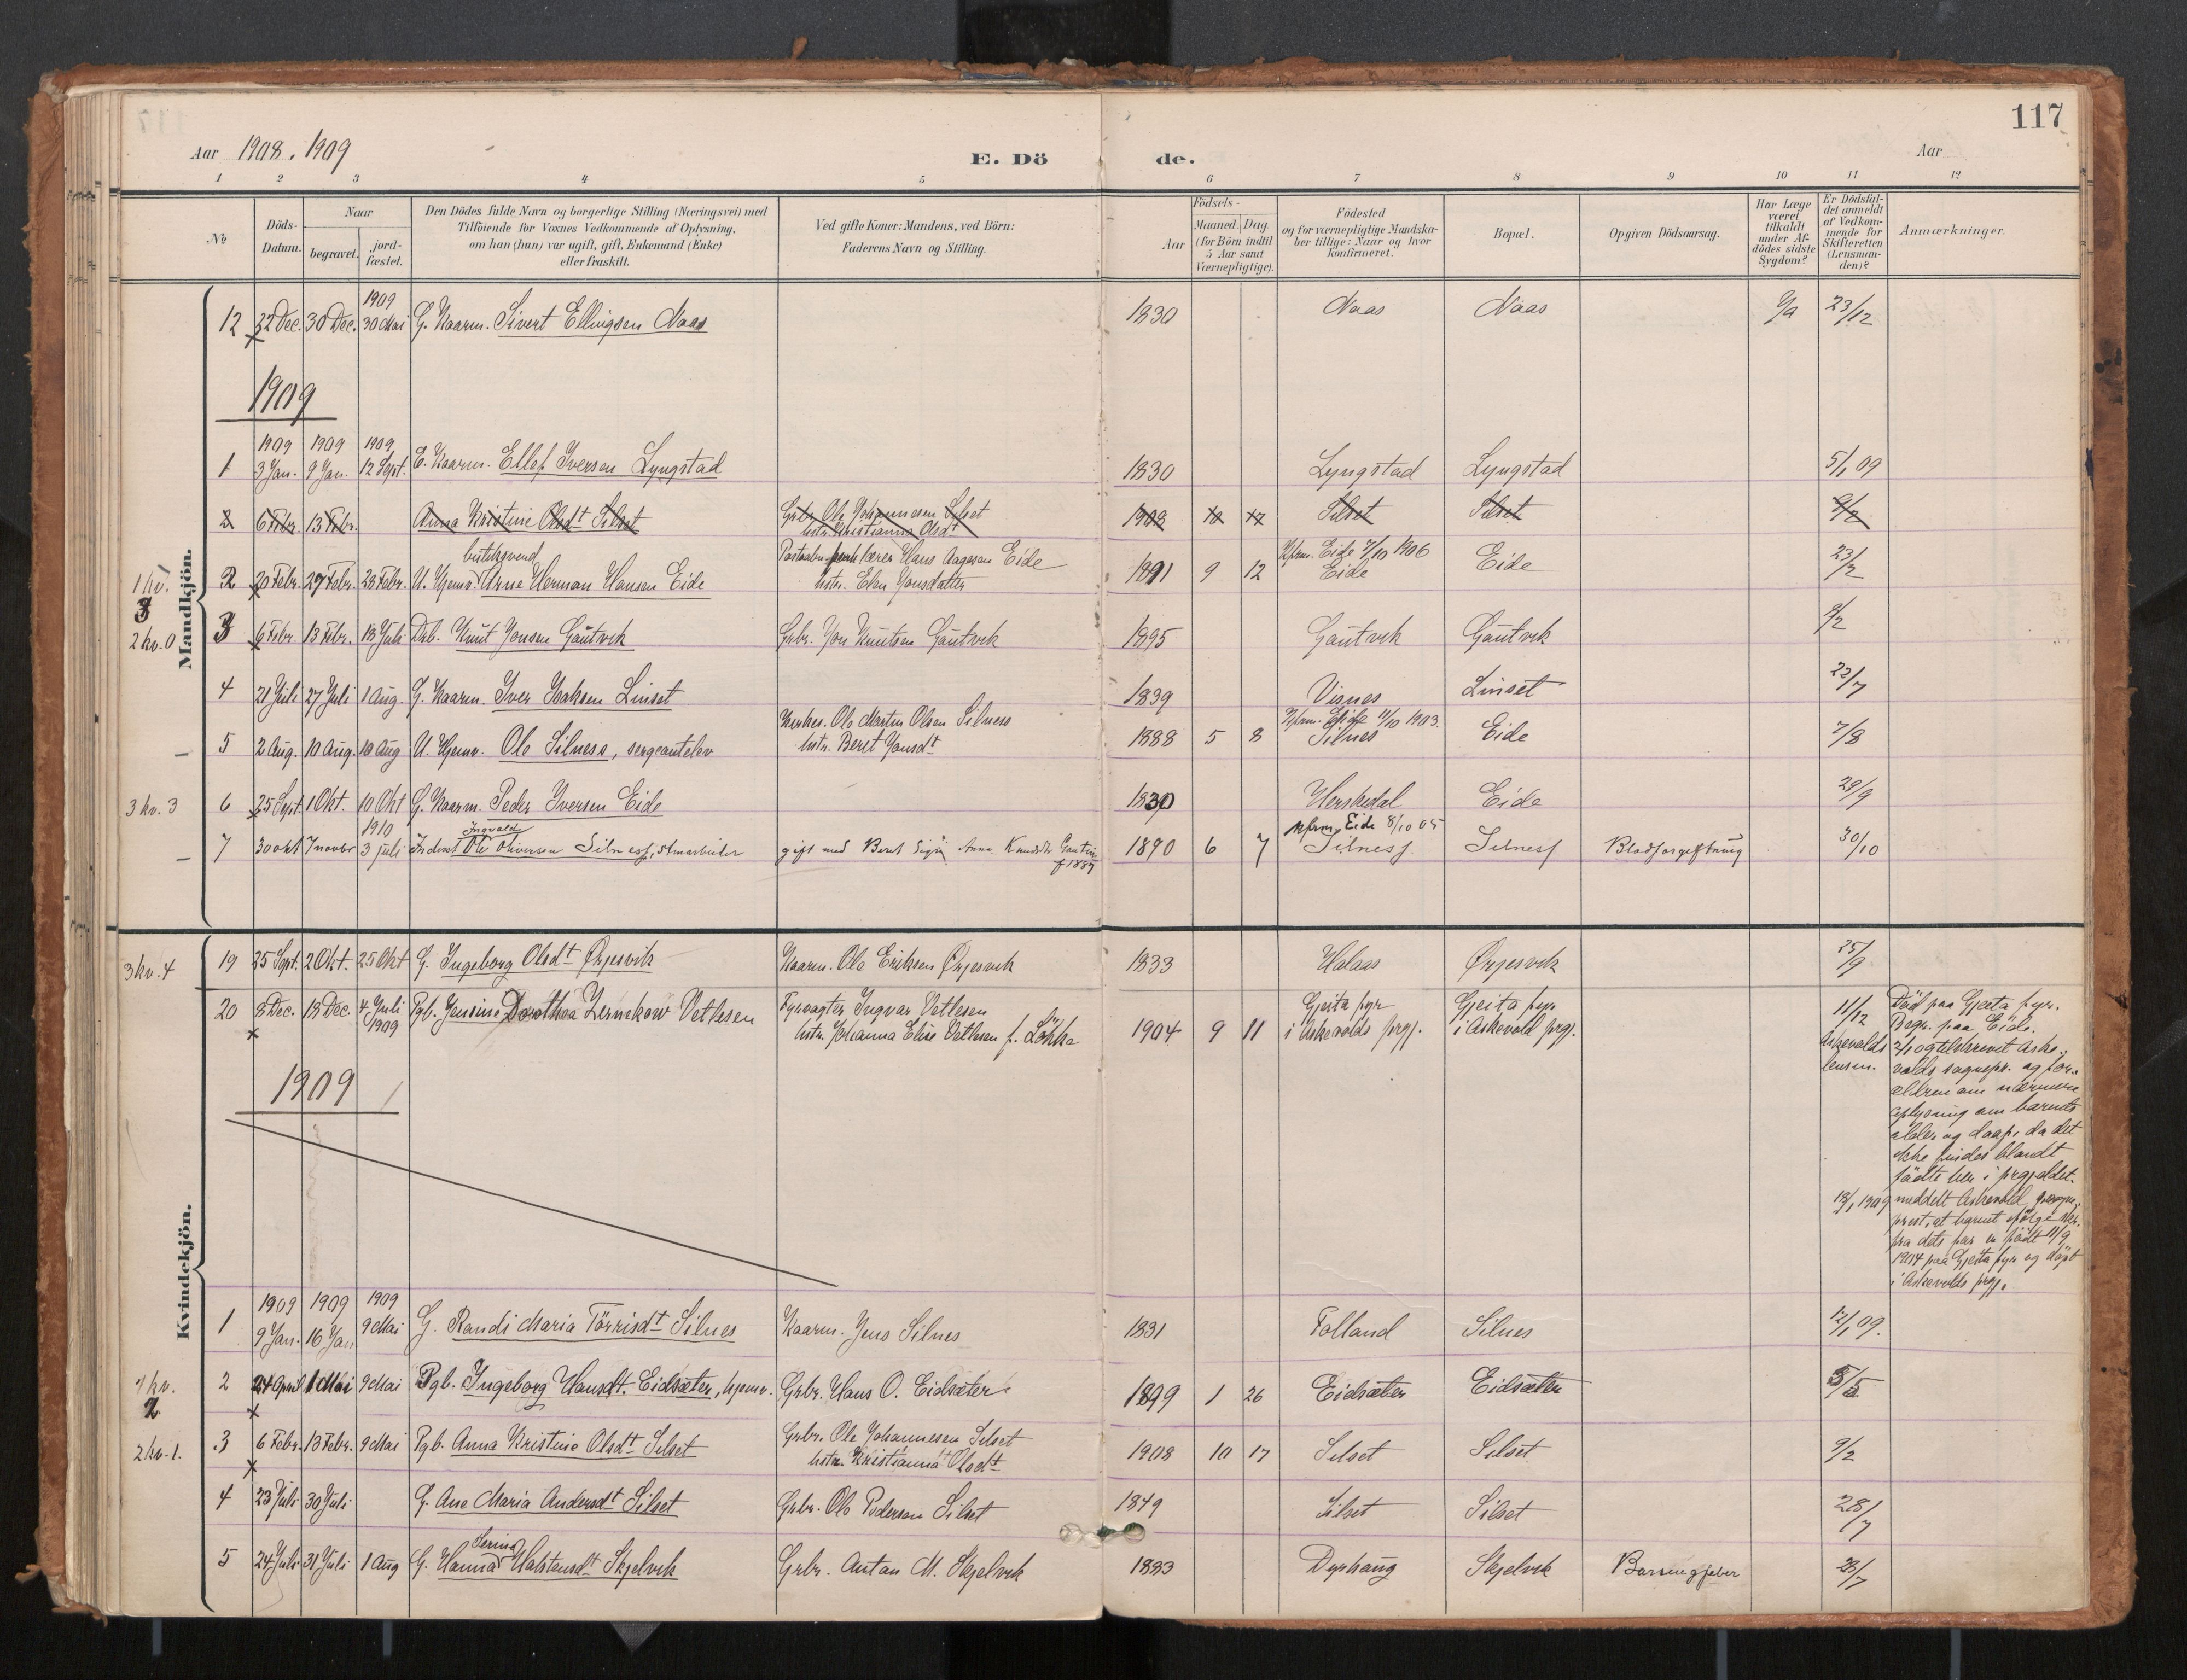 117
Aar 1908. 1909
E. Dö de.
Aar
1 2 3 4 5 6 7 8 9 10 11 12
No
Döds-
Datum.
Naar
begravet.
jord-
fæstet.
Den Dödes fulde Navn og borgerlige Stilling (Næringsvei) med
Tilföiende for Voxnes Vedkommende af Oplysning,
om han (hun) var ugift, gift, Enkemand (Enke)
eller fraskilt.
Ved gifte Koner: Mandens, ved Börn:
Faderens Navn og Stilling.
Födsels-
Aar
Maaned. Dag.
(for Börn indtil
5 Aar samt
Værnepligtige).
Födested
og for værnepligtige Mandska-
ber tillige: Naar og hvor
konfirmeret.
Bopæl.
Opgiven Dödsaarsag.
Har Læge
været
tilkaldt
under Af-
dödes sidste
Sygdom?
Er Dödsfal-
det anmeldt
af Vedkom-
mende for
Skifteretten
(Lensman-
den)?
Anmærkninger.
Mandkjön.
1909
12 22 Dec. 30 Dec. 30 Mai G. Kaarm. Sivert Ellingsen Naas 1830 Naas Naas Ja 23/12
1909
1909 1909 1909
1 3 Jan. 9 Jan. 12 Sept. E. Kaarm. Ellef Iversen Lyngstad 1830 Lyngstad Lyngstad 5/1 09
2 6 Febr. 13 Febr. Anna Kristine Olsdt Silset Grbr. Ole Johannesen Silset 1908 10 17 Silset Silset 9/2
hstr. Kristianna Olsdt
butiksvend Hans Aagesen Eide Kfrm. Eide 7/10 1906
1 kv. 2 20 Febr. 27 Febr. 28 Febr. U. Hjemv. Arne Herman Hansen Eide hstr. Elen Jonsdatter 1891 9 12 Eide Eide 23/2
3
2 kv. 0 3 6 Febr. 13 Febr. 18 Juli Drb. Knut Jonsen Gautvik Grbr. Jon Knutsen Gautvik 1895 Gautvik Gautvik
4 21 Juli 27 Juli 1 Aug. G. Kaarm. Iver Isaksen Linset 1839 Visnes Linset 22/7
Kirkes. Ole Martin Olsen Silness Kfrm. Eide 11/10 1903.
5 2 Aug. 10 Aug. 10 Aug U. Hjemv. Ole Silness, sergeantelev hstr. Beret Jonsdt 1888 5 8 Silnes Eide 7/8
3 kv. 3 6 25 Sept. 1 Okt. 10 Okt G. Kaarm. Peder Iversen Eide 1830 Herskedal Eide 29/9
1910 Ingvald Kfrm. Eide 8/10 05
7 30 okt 7 novbr 3 juli Inderst Ole Oliversen Silness, stenarbeider gift med Berit Anna 1890 6 7 Silness Silness Blodforgiftning 30/10
f 1887
Kvindekjön.
3 kv. 4 19 25 Sept. 2 Okt. 25 Okt G. Ingeborg Olsdt Ørjesvik Kaarm. Ole Eriksen Ørjesvik 1833 Halaas Ørjesvik 25/9
20 8 Dec. 18 Dec. 4 Juli 1909 Pgb. Jensine Dorothea Zernekow Vetlesen Fyrvogter Ingvar Vetlesen
hstr. Johanna Elise Vetlesen f. Løkke 1904 9 11 Gjeita fyr
i Askevolds prgj. Gjeita fyr
i Askevold prgj. 11/12
Askevolds
lensm.
Död paa Gjeita fyr.
Begr. paa Eide.
2/1 09 tilskrevet Aske-
volds sognepr. og for-
ældren om nærmere
oplysning om barnets
alder og daap, da det
ikke findes blandt
fødte her i prgjeldet.
18/1 1909 meddelt Askevold
prest, at barnet ifølge skr.
fra dets far er født 11/9
1904 paa Gjeita fyr og døpt
i Askevolds prgj.
1909
1909 1909 1909
1 9 Jan. 16 Jan 9 Mai G. Randi Maria Törrisdt Silnes Kaarm. Jens Silnes 1831 Tolland Silnes 12/1 09.
1 kv. 2 24 April 1 Mai 9 Mai Pgb. Ingeborg Hansdt. Eidsæter, hjemv. Grbr. Hans O. Eidsæter 1899 1 26 Eidsæter Eidsæter 5/5
2
2 kv. 1. 3 6 Febr. 13 Febr. 9 Mai Pgb. Anna Kristine Olsdt Silset Grbr. Ole Johannesen Silset
hstr. Kristianna Olsdt 1908 10 17 Silset Silset 9/2
4 23 Juli 30 Juli G. Ane Maria Andersdt Silset Grbr. Ole Pedersen Silset 1849 Silset Silset 28/7
Serina
5 24 Juli 31 Juli 1 Aug G. Hanna Halstensdt Skjelvik Grbr. Anton M. Skjelvik 1883 Dyrhaug Skjelvik Barselfeber 28/7